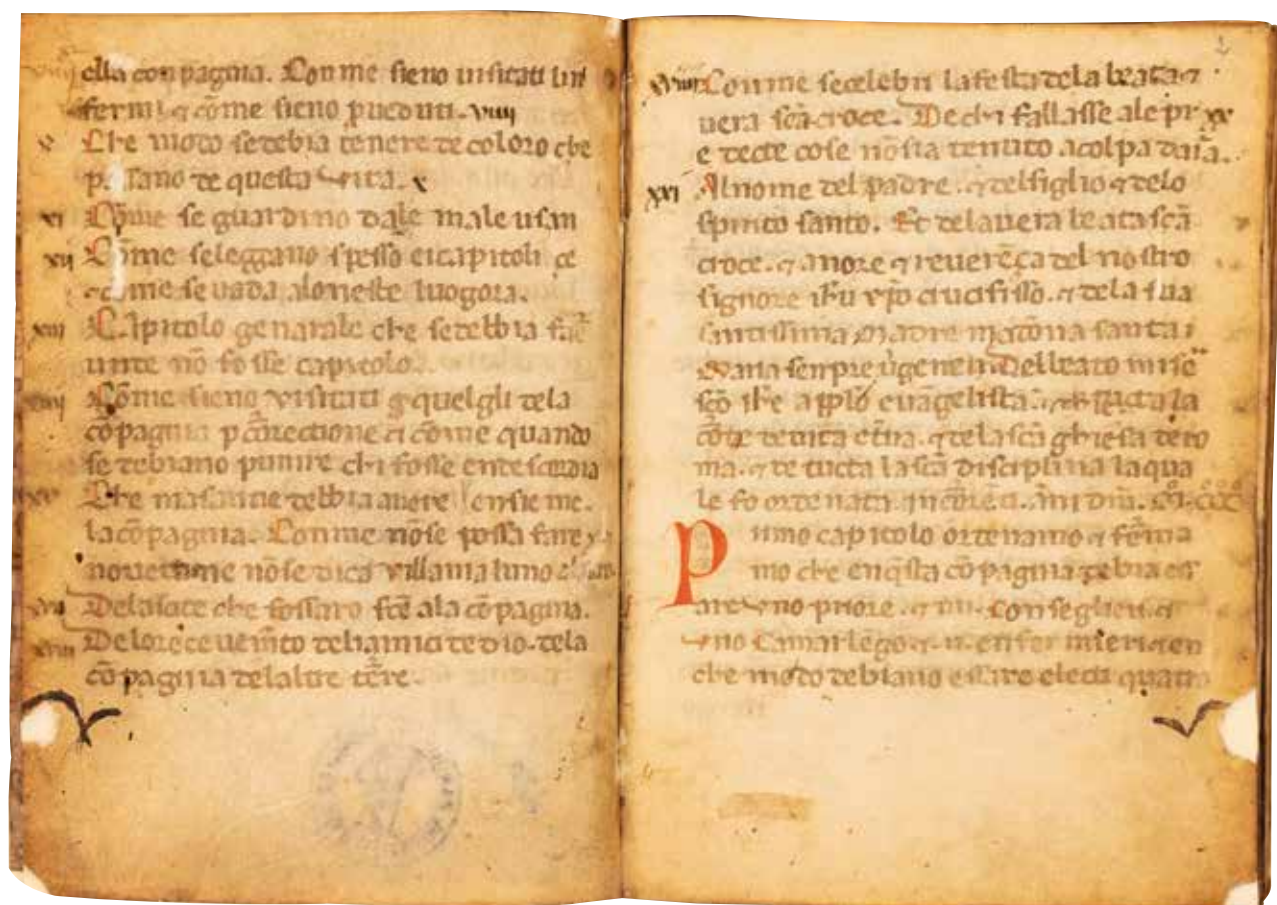 viiii ella conpagnia. Conme sieno uisitati lin
fermi ⁊ cōme sieno proueduti. viiii
x Che modo se debia tenere de coloro che
passano de questa uita. x
xi Cōme se guardino dale male usan
xii Cōme seleggano spesso eicapitoli ce
cōme se uada aloneste luogora.
xiii Capitolo generale che se debbia fare
unte nō fosse capitolo.
xiiii Cōme sieno visitati quelgli dela
cōpagnia correctione ⁊ cōme quando
se debiano punire chi fosse ente scandia
xv Che masaritie debbia auere ensieme.
la cōpagnia. Conme nōse possa fare
nouetāme nōse dica villania luno
xvii Delascite che fossaro fcē ala cōpagnia.
xviii Delo receuemēto deli amici de dio. dela
cōpagnia delaltre tērre.
xviiii Conme secelebri la festa dela beata ⁊
uera scā croce. De chi fallasse ale pr xx
e decte cose nō sia tenuto a colpa
xxi Al nome del padre. ⁊ del figlio ⁊ delo
spirito santo. Et dela uera beata scā
croce. ⁊ anore ⁊ reuerēça del nostro
signore ihu xp̄o crucifisso. ⁊ dela sua
santissima madre madōna santa
Maria senpre uirgene Del beato mise
sco ihe app̄lo euāgelista. ⁊ tucta la
cōrte de uita etn̄a. ⁊ dela scā ghiesia de ro
ma. ⁊ de tucta la scā disciplina la qua
le fo ordenata
Primo capitolo ordenamo ⁊ fērma
mo che enq̄sta cōpagnia debia es
are uno priore. ⁊ iiii. conseglieri. ⁊
uno camarlēgo ⁊ ii. enfermieri ⁊ en
che modo debiano essere electi quatro